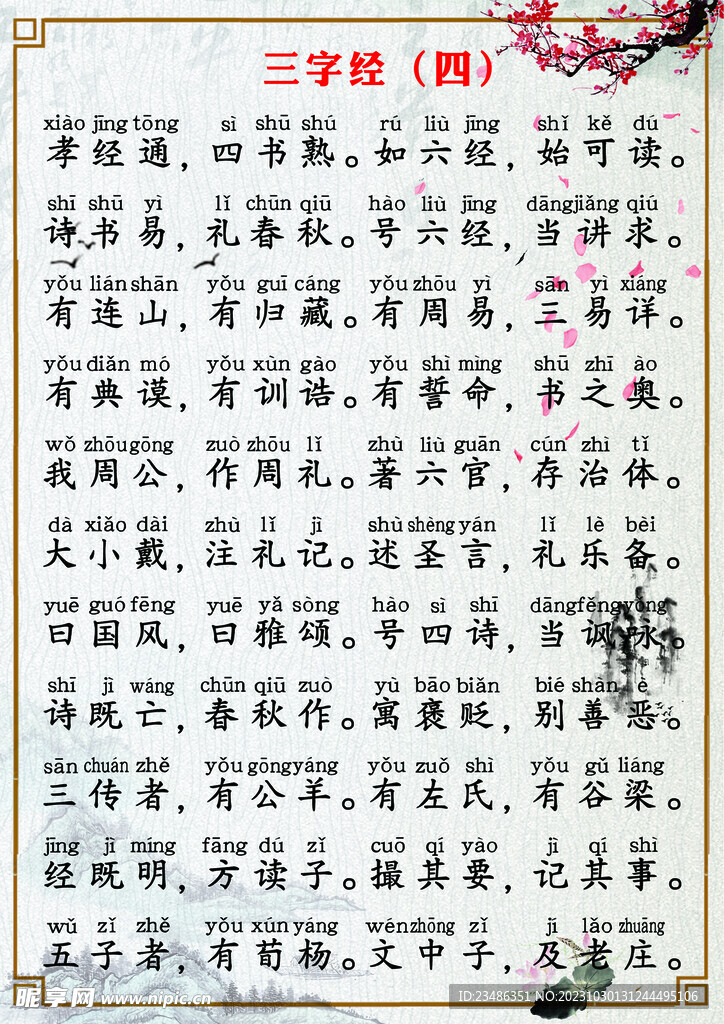 三字经（四）
xiào jīng tōng sì shū shú rú liù jīng shǐ kě dú
孝经通，四书熟。如六经，始可读。
shī shū yì lǐ chūn qiū hào liù jīng dāng jiǎng qiú
诗书易，礼春秋。号六经，当讲求。
yǒu lián shān yǒu guī cáng yǒu zhōu yì sān yì xiáng
有连山，有归藏。有周易，三易详。
yǒu diǎn mó yǒu xùn gào yǒu shì mìng shū zhī ào
有典谟，有训诰。有誓命，书之奥。
wǒ zhōu gōng zuò zhōu lǐ zhù liù guān cún zhì tǐ
我周公，作周礼。著六官，存治体。
dà xiǎo dài zhù lǐ jì shù shèng yán lǐ lè bèi
大小戴，注礼记。述圣言，礼乐备。
yuē guó fēng yuē yǎ sòng hào sì shī dāng fěng yǒng
曰国风，曰雅颂。号四诗，当讽咏。
shī jì wáng chūn qiū zuò yù bāo biǎn bié shàn è
诗既亡，春秋作。寓褒贬，别善恶。
sān chuán zhě yǒu gōng yáng yǒu zuǒ shì yǒu gǔ liáng
三传者，有公羊。有左氏，有谷梁。
jīng jì míng fāng dú zǐ cuō qí yào jì qí shì
经既明，方读子。撮其要，记其事。
wǔ zǐ zhě yǒu xún yáng wén zhōng zǐ jí lǎo zhuāng
五子者，有荀杨。文中子，及老庄。
昵享网 www.nipic.cn
ID:23486351 NO:20231030131244495106